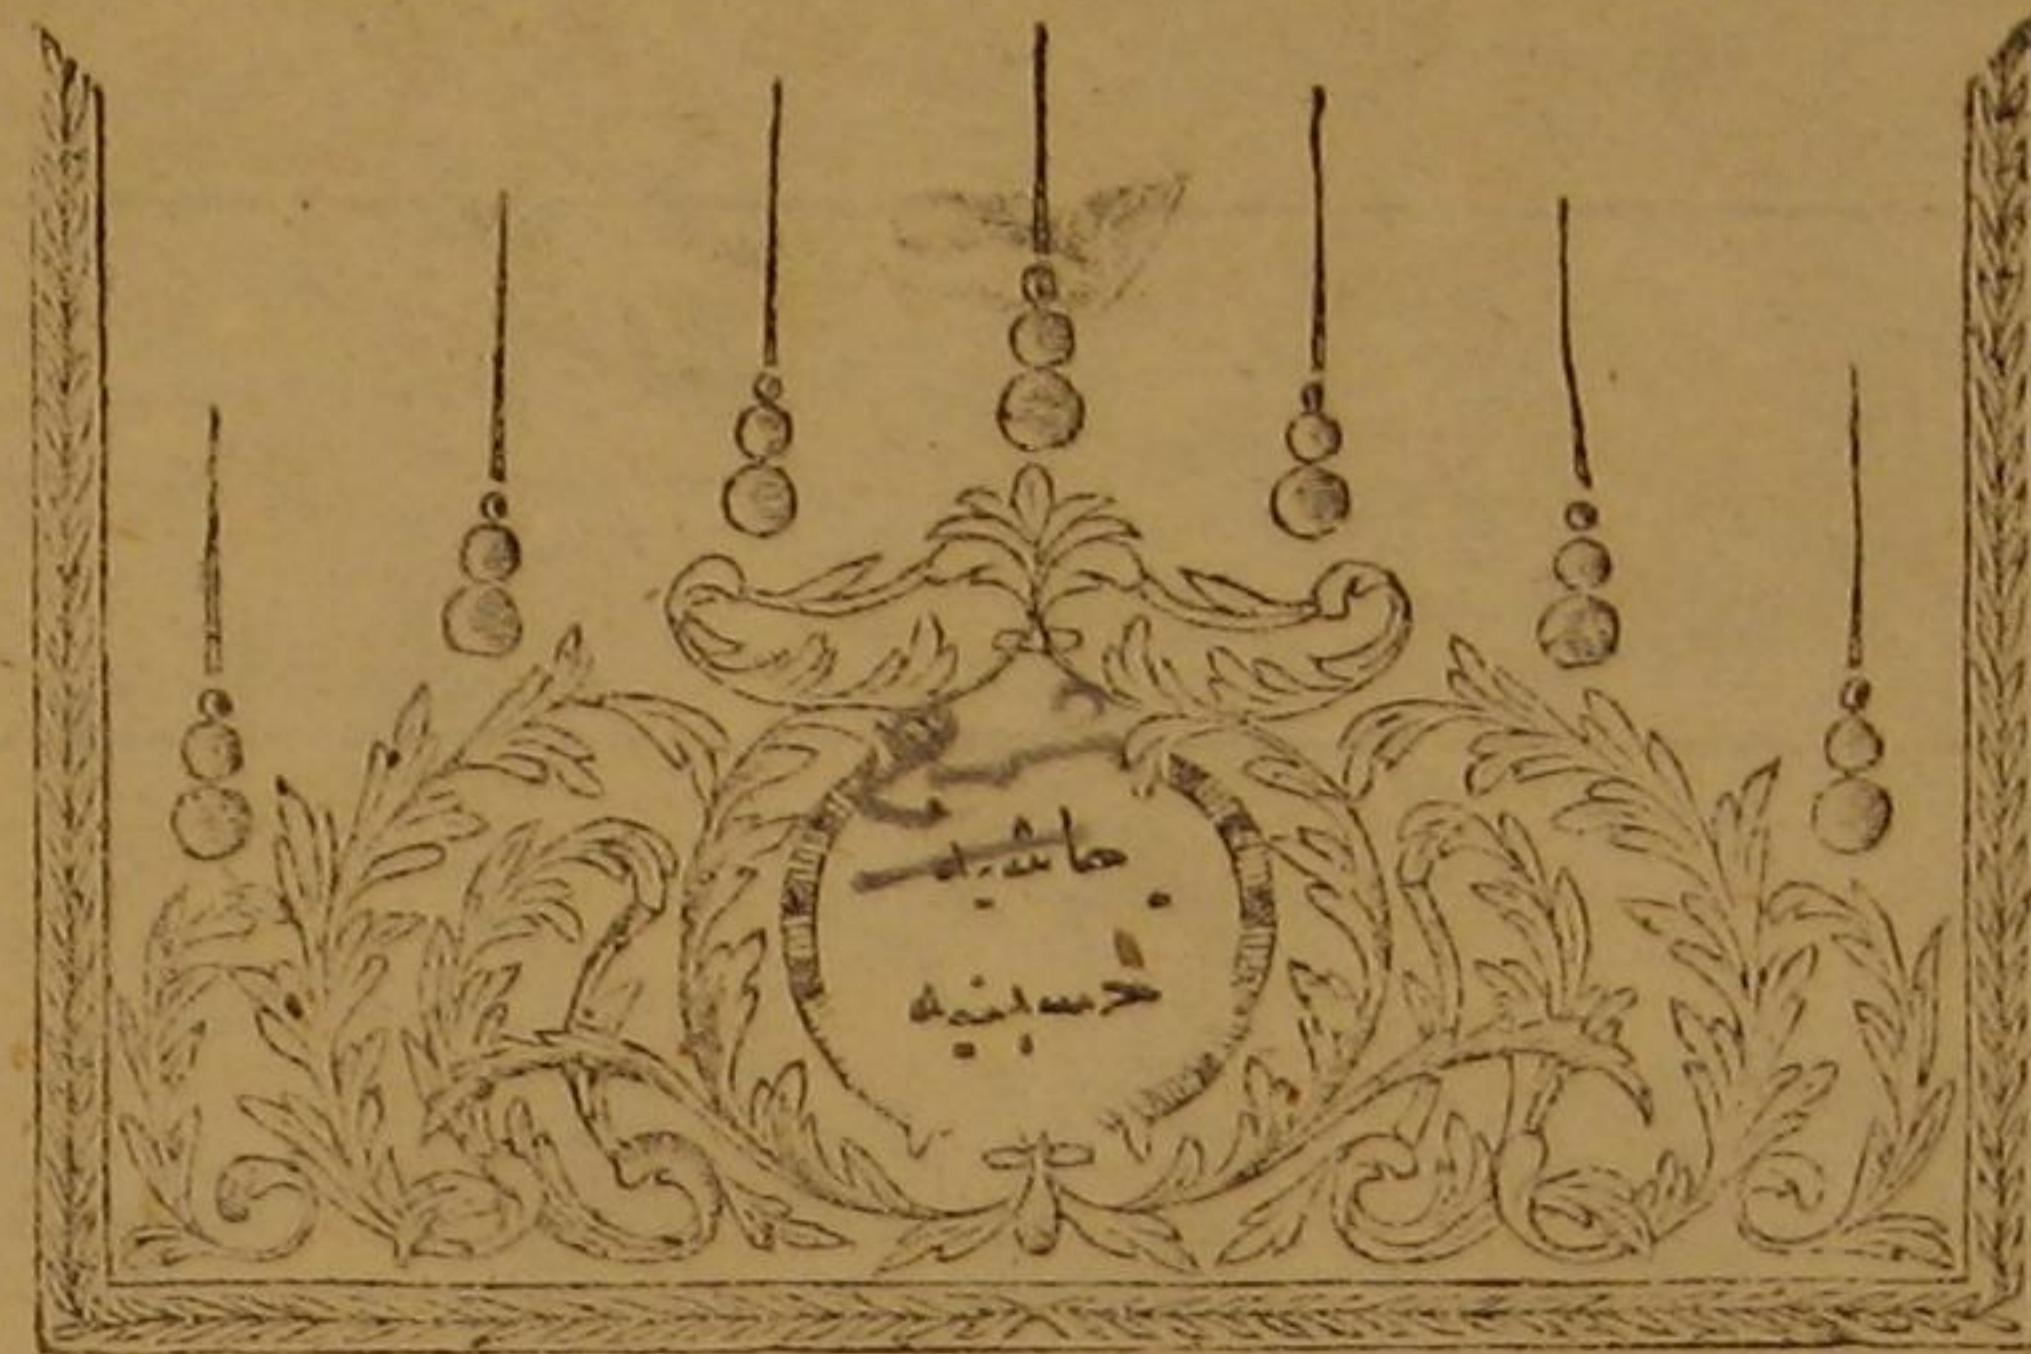 حاشيه
حسينيه